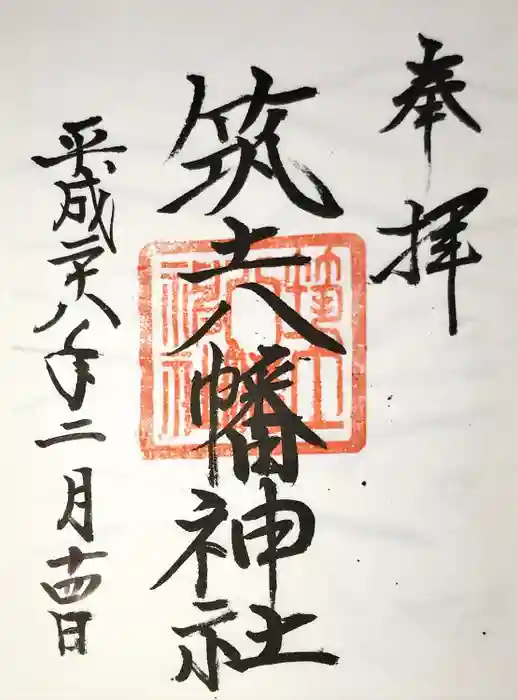 奉拝
筑土八幡神社
平成二十八年二月十四日